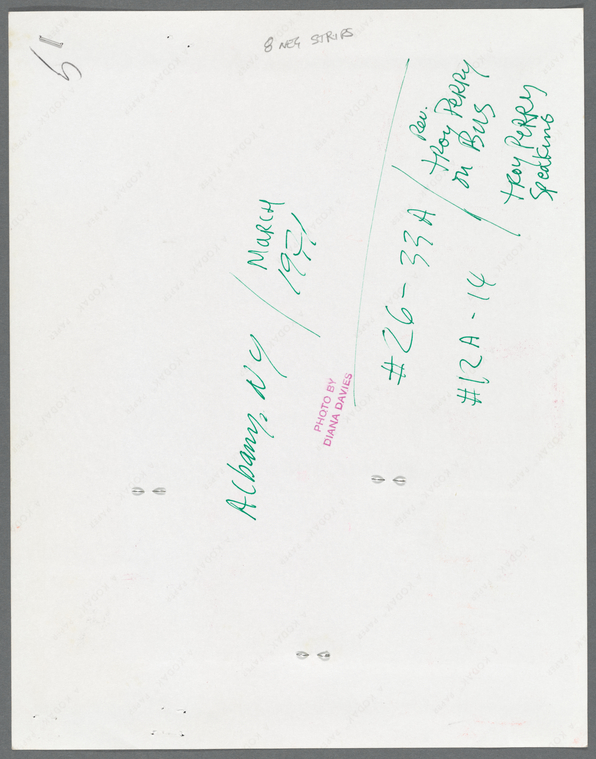 8 NEG STRIPS
51
Albany, NY / MARCH
1971
PHOTO BY
DIANA DAVIES
#26-33A / Rev.
troy PERRY
on Bus
#12A-14
troy PERRY
Speaking